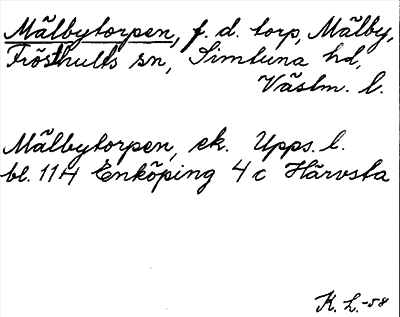 Mälbytorpen, f. d. torp, Mälby,
Frösthults sn, Simtuna hd,
Västm. l.
Mälbytorpen, ek. Upps. l.
bl. 11H Enköping 4c Härvsta
K. L.-58